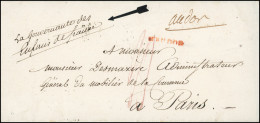 La Gouvernante des
Enfans de france
meudon
MEUDON
A monsieur
Monsieur Desmazis Administrateur
général du mobilier de la Couronne
à Paris.